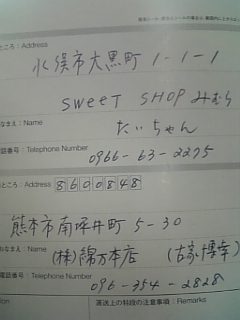 ところ：Address
水俣市大黒町1-1-1
sweet SHOPみむら
なまえ：Name
たいちゃん
電話番号：Telephone Number
0966-63-2275
ところ：Address
8600848
熊本市南坪井町5-30
なまえ：Name
(株)錦万本店 (古家博幸)
電話番号：Telephone Number
096-354-2828
運送上の特段の注意事項：Remarks